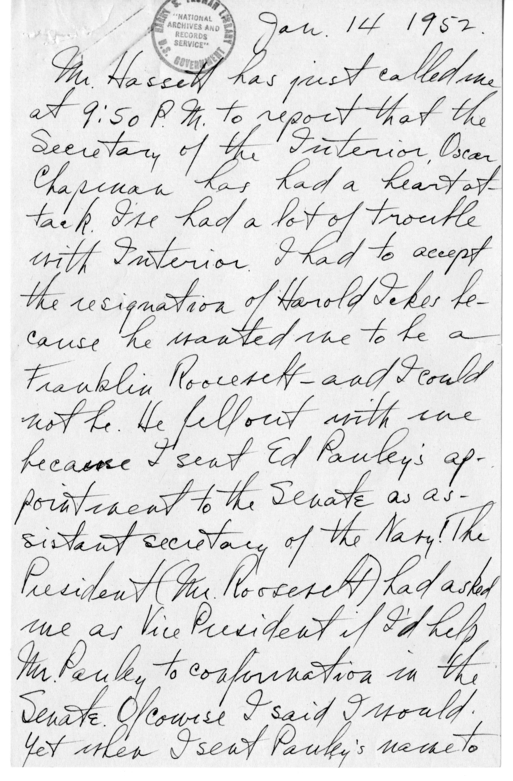 HARRY S. TRUMAN LIBRARY
"NATIONAL
ARCHIVES AND
RECORDS
SERVICE"
U.S. GOVERNMENT
Jan. 14 1952.
Mr. Hassett has just called me
at 9:50 P.M. to report that the
Secretary of the Interior, Oscar
Chapman has had a heart at-
tack. I've had a lot of trouble
with Interior. I had to accept
the resignation of Harold Ickes be-
cause he wanted me to be a
Franklin Roosevelt – and I could
not be. He fell out with me
because I sent Ed Pauley's ap-
pointment to the Senate as as-
sistant secretary of the Navy! The
President (Mr. Roosevelt) had asked
me as Vice President if I'd help
Mr. Pauley to confirmation in the
Senate. Of course I said I would.
Yet when I sent Pauley's name to